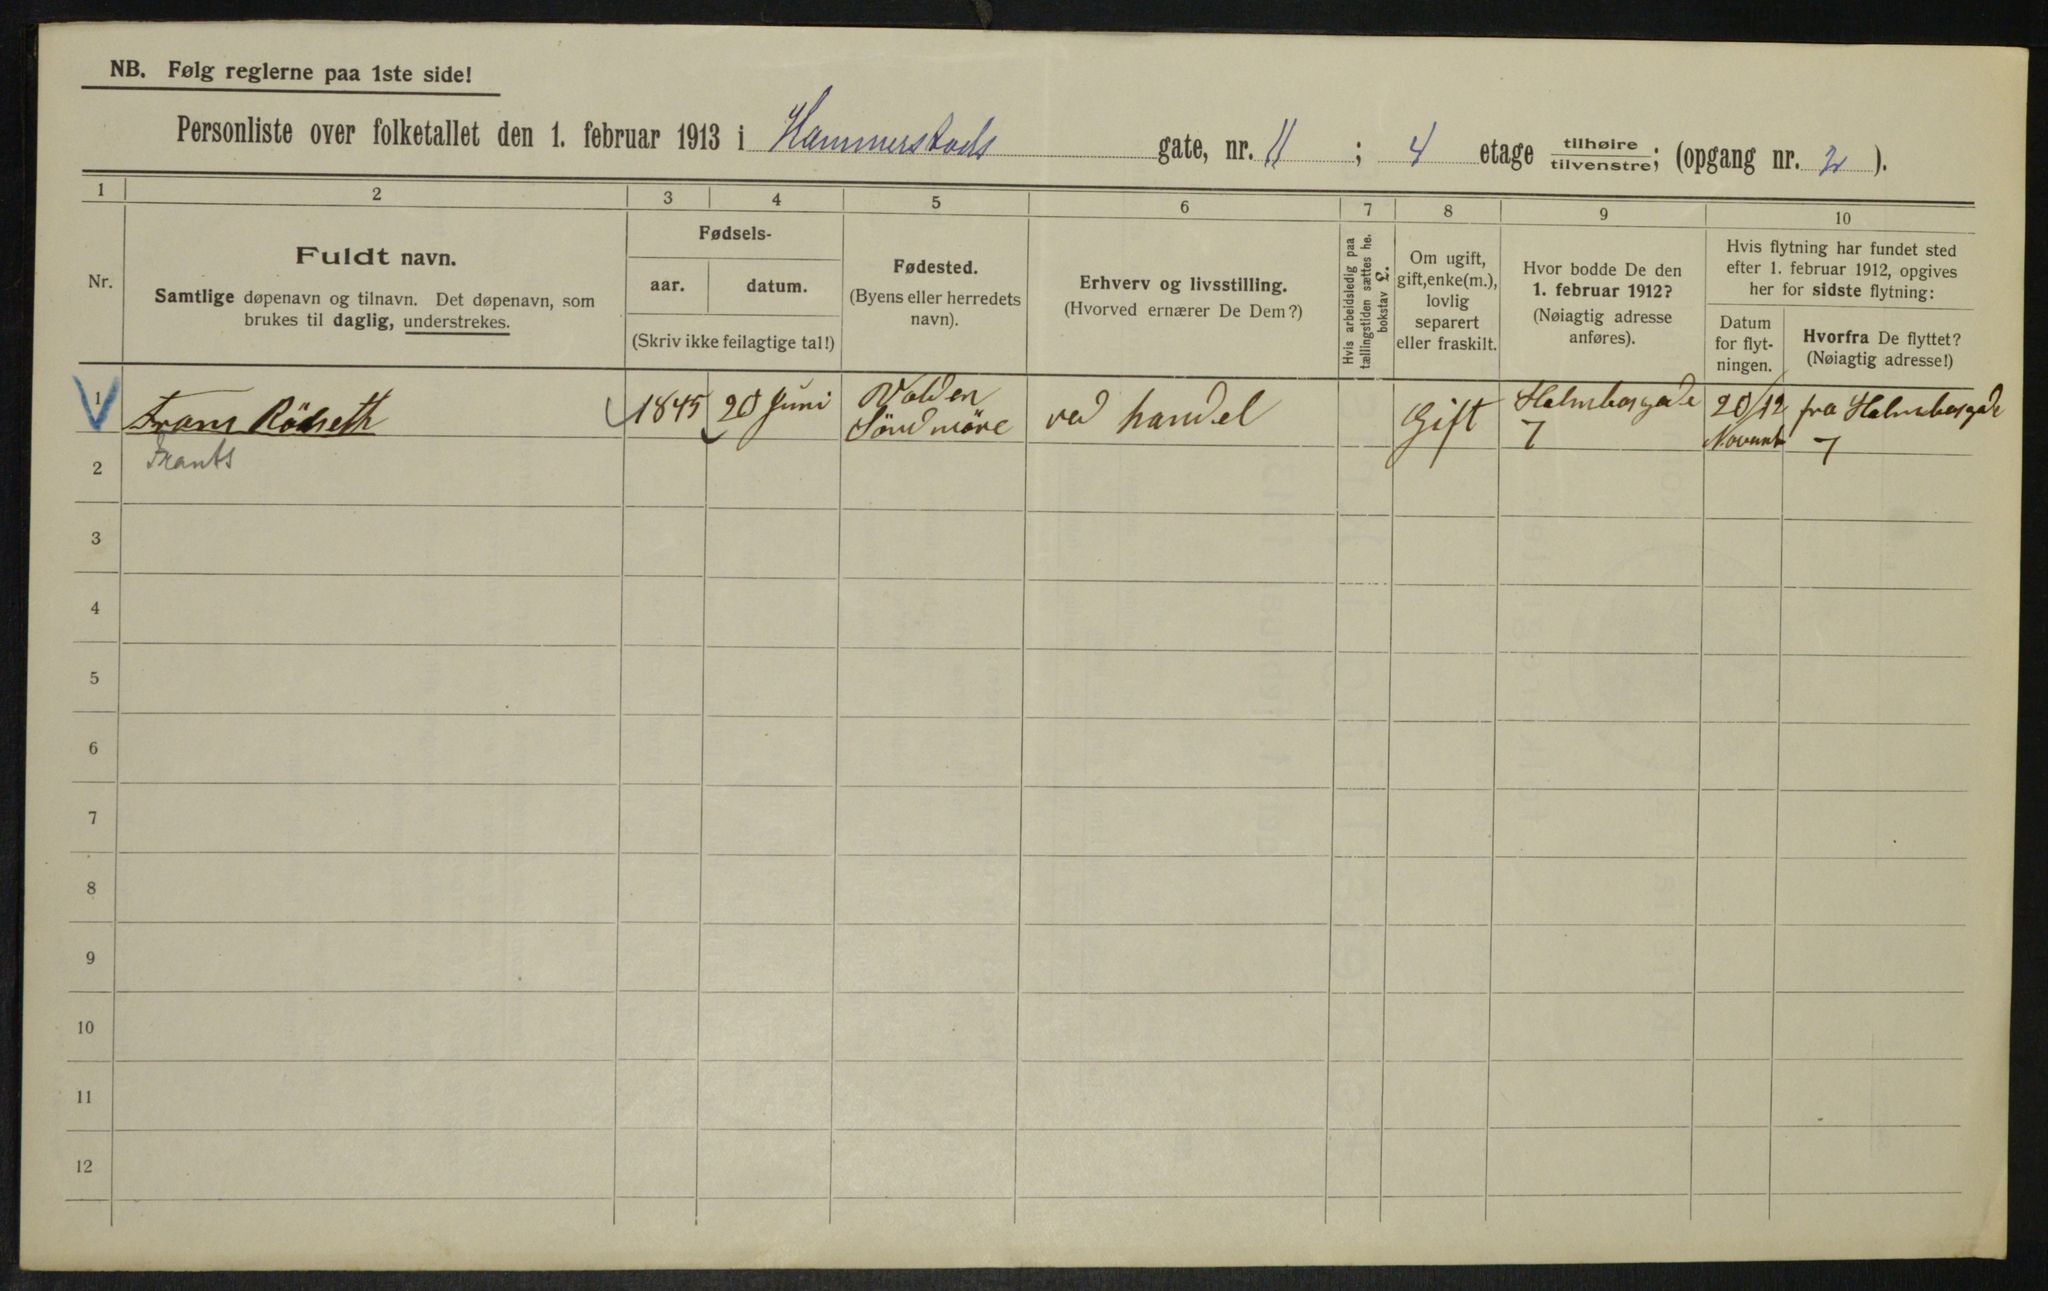 NB. Følg reglerne paa 1ste side!
Personliste over folketallet den 1. februar 1913 i Hammerstads gate, nr. 11 ; 4 etage tilhøire / tilvenstre; (opgang nr. 2 ).
1 2 3 4 5 6 7 8 9 10
Nr.
Fuldt navn.
Samtlige døpenavn og tilnavn. Det døpenavn, som
brukes til daglig, understrekes.
Fødsels-
aar. datum.
(Skriv ikke feilagtige tal!)
Fødested.
(Byens eller herredets
navn).
Erhverv og livsstilling.
(Hvorved ernærer De Dem?)
Hvis arbeidsledig paa
tællingstiden sættes he.
bokstav L.
Om ugift,
gift, enke(m.),
lovlig
separert
eller fraskilt.
Hvor bodde De den
1. februar 1912?
(Nøiagtig adresse
anføres).
Hvis flytning har fundet sted
efter 1. februar 1912, opgives
her for sidste flytning:
Datum
for flyt-
ningen.
Hvorfra De flyttet?
(Nøiagtig adresse!)
1 Frans Rödseth 1845 20 Juni Volden
Söndmöre ved handel Gift Holmbosgade
7 20/12
Novemb fra Holmbosgade
7
Frants
2
3
4
5
6
7
8
9
10
11
12